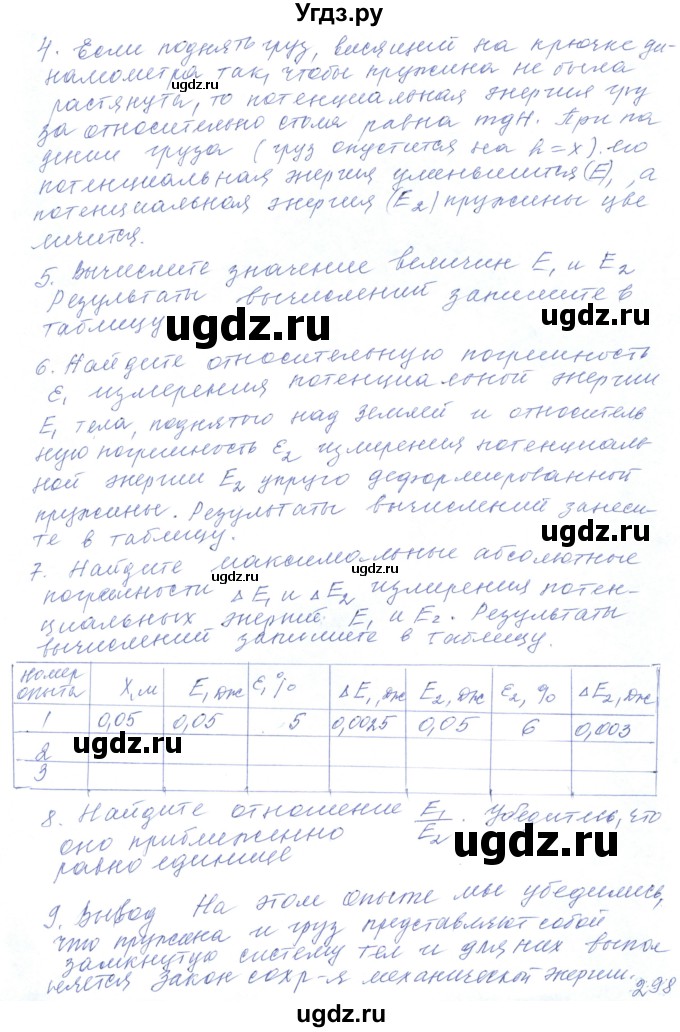 Угдз.ру
4. Если поднять груз, висящий на крючке ди-
намометра так, чтобы пружина не была
растянута, то потенциальная энергия гру
за относительно стола равна mgH. При па
дении груза (груз опустится на h=x) его
потенциальная энергия уменьшится (E₁), а
потенциальная энергия (E₂) пружины уве
личится.
5. Вычислите значение величин E₁ и E₂
Результаты вычислений запишите в
таблицу
6. Найдите относительную погрешность
ε₁ измерения потенциальной энергии
E₁ тела, поднятого над Землей и относитель
ную погрешность ε₂ измерения потенциаль
ной энергии E₂ упруго деформированной
пружины. Результаты вычислений занеси-
те в таблицу.
7. Найдите максимальные абсолютные
погрешности ΔE₁ и ΔE₂ измерения потен-
циальных энергий E₁ и E₂. Результаты
вычислений запишите в таблицу.
Номер опыта X, м E₁, Дж ε₁ % ΔE₁, Дж E₂, Дж ε₂, % ΔE₂, Дж
1 0,05 0,05 5 0,0025 0,05 6 0,003
2
3
8. Найдите отношение E₁/E₂. Убедитесь, что
оно приближенно
равно единице
9. Вывод На этом опыте мы убедились,
что пружина и груз представляют собой
замкнутую систему тел и для них выпол
няется Закон сохр-я механической энергии.
298
ugdz.ru
ugdz.ru
ugdz.ru
ugdz.ru
ugdz.ru
ugdz.ru
ugdz.ru
ugdz.ru
ugdz.ru
ugdz.ru
ugdz.ru
ugdz.ru
ugdz.ru
ugdz.ru